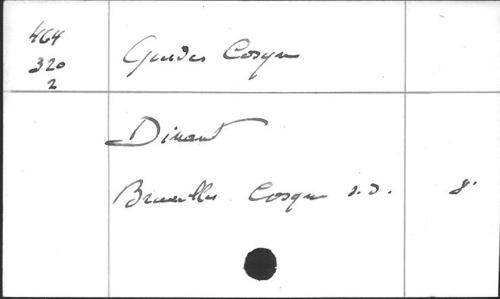 464
320
2
Guides Cosyn
Dinant
Bruxelles Cosyn s.d. 8°